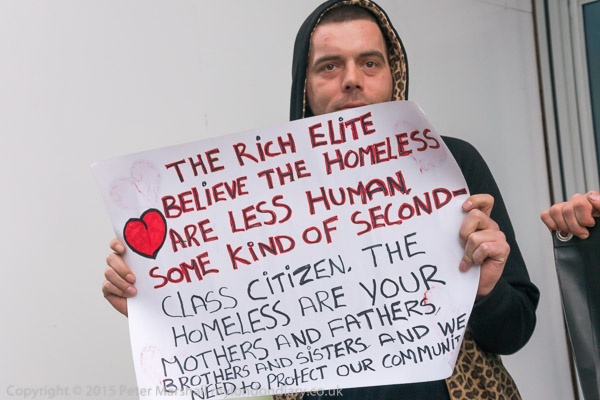 THE RICH ELITE
BELIEVE THE HOMELESS
ARE LESS HUMAN,
SOME KIND OF SECOND-
CLASS CITIZEN. THE
HOMELESS ARE YOUR
MOTHERS AND FATHERS,
BROTHERS AND SISTERS AND WE
NEED TO PROTECT OUR COMMUNIT
Copyright © 2015 Peter Marsh